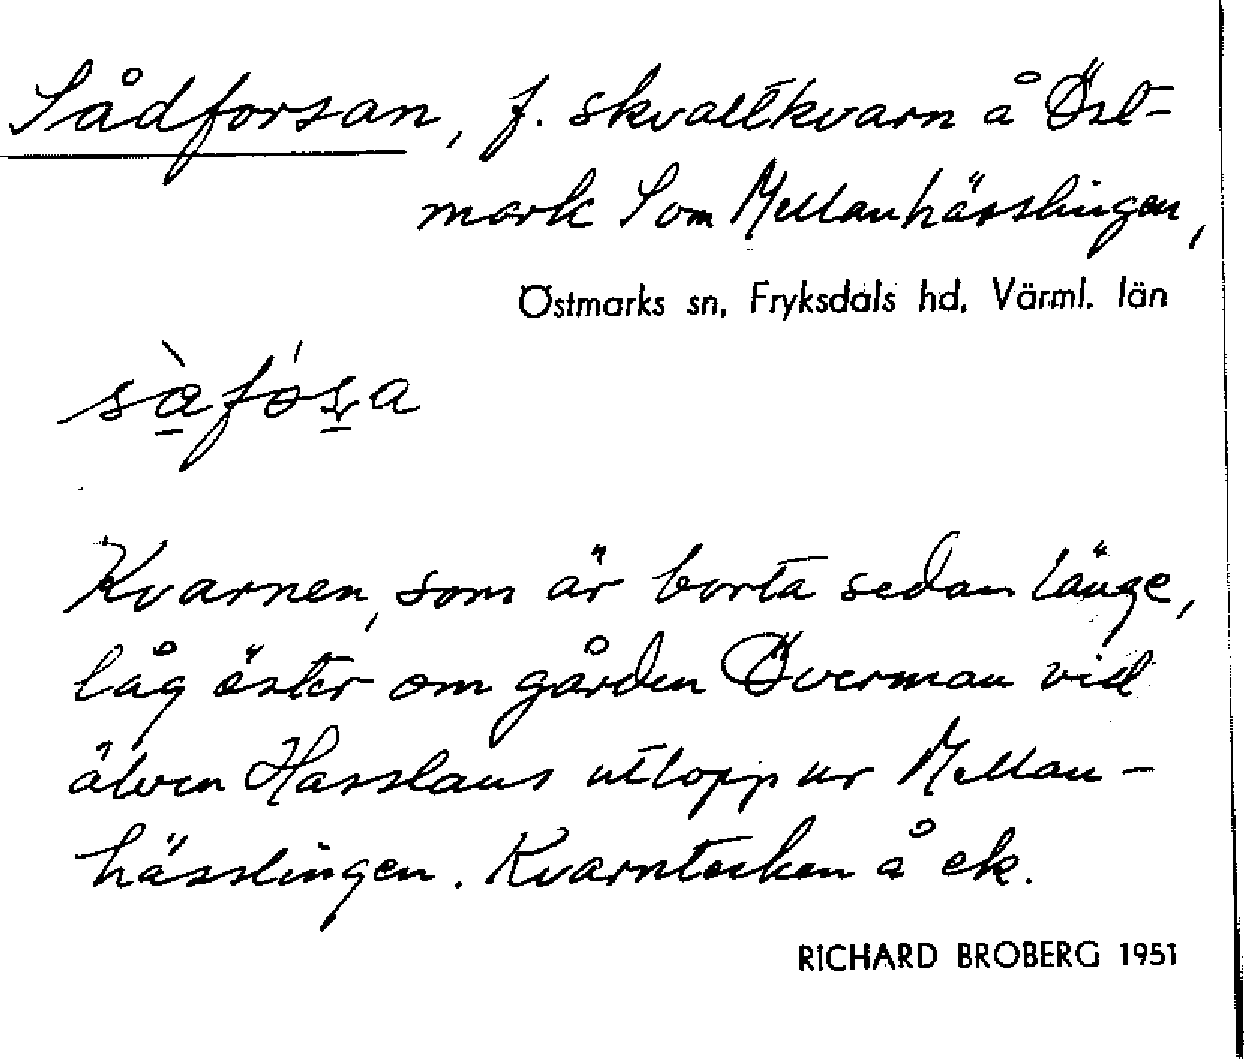 Sådforsan, f. skvaltkvarn å Öst-
mark S om Mellanhässlingen,
Östmarks sn, Fryksdals hd, Värml. län
Kvarnen, som är borta sedan länge,
låg öster om gården Överman vid
älven Hasslans utlopp ur Mellan-
hässlingen. Kvarntecken å ek.
RICHARD BROBERG 1951